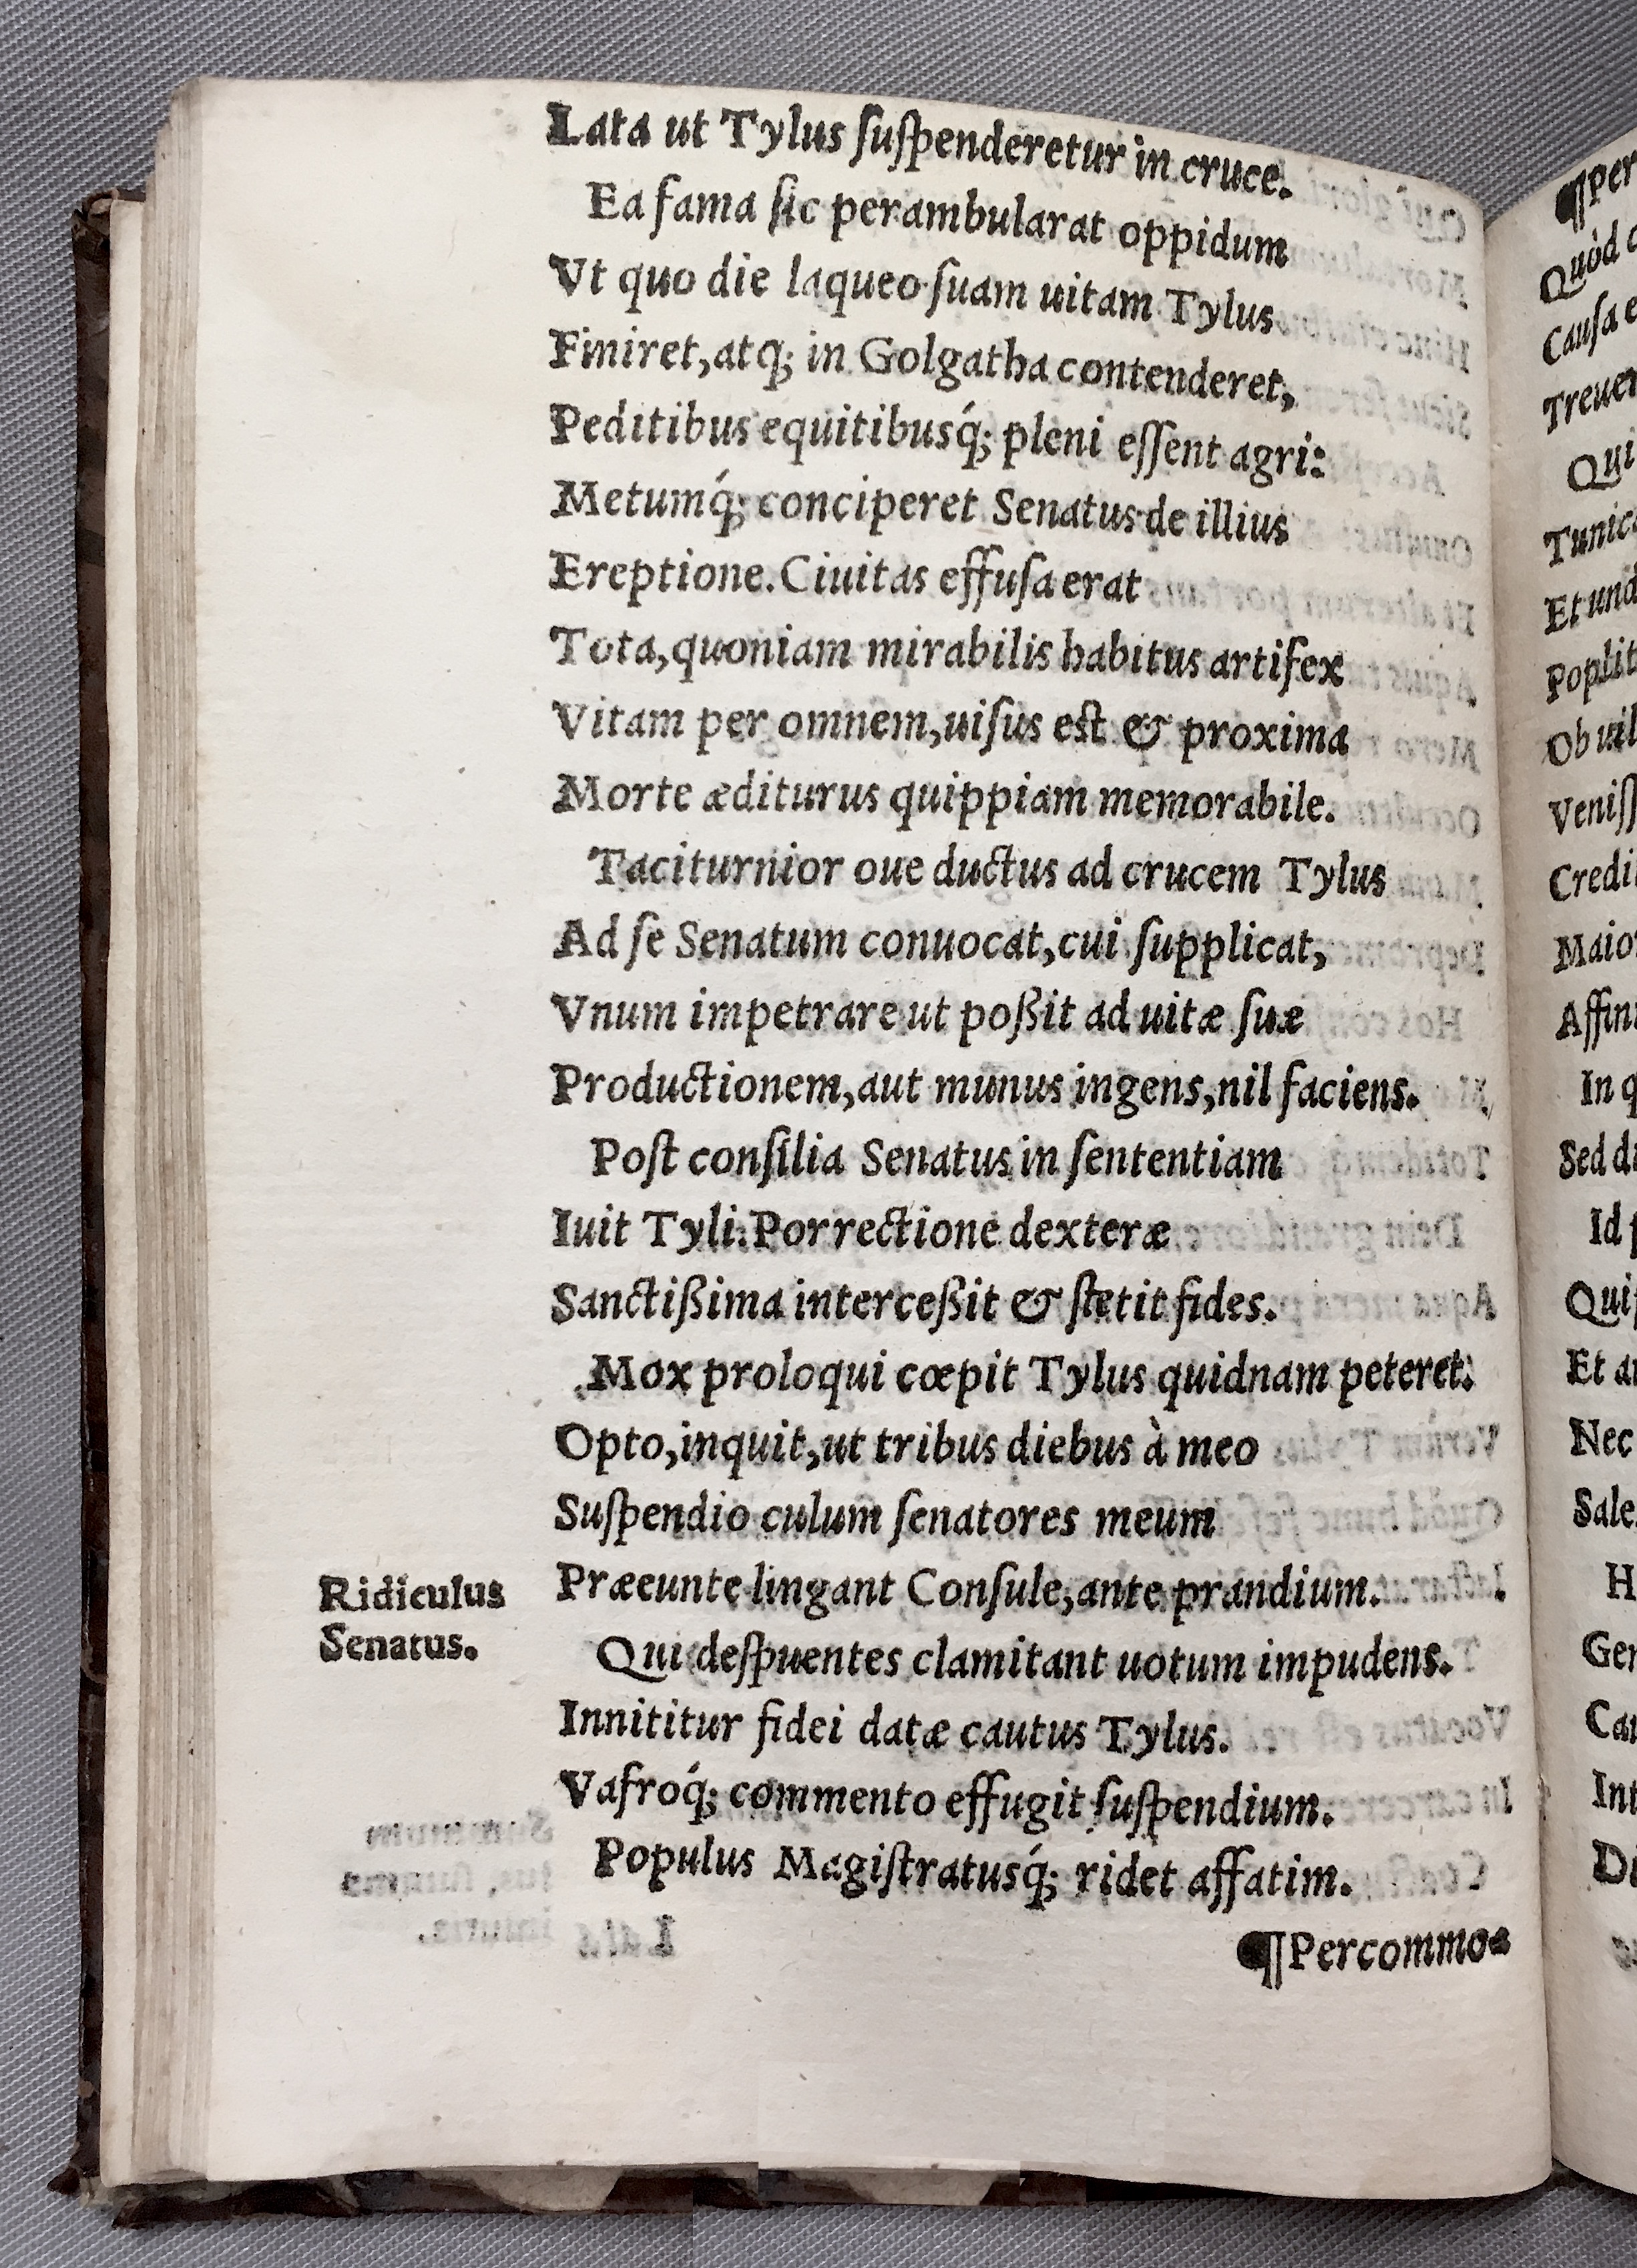 Lata ut Tylus ſuſpenderetur in cruce.
Ea fama ſic perambularat oppidum
Vt quo die laqueo ſuam uitam Tylus
Finiret, atq; in Golgatha contenderet,
Peditibus equitibusq́; pleni eſſent agri:
Metumq́; conciperet Senatus de illius
Ereptione. Ciuitas effuſa erat
Tota, quoniam mirabilis habitus artifex
Vitam per omnem, uiſus est & proxima
Morte æditurus quippiam memorabile.
Taciturnior oue ductus ad crucem Tylus
Ad ſe Senatum conuocat, cui ſupplicat,
Vnum impetrare ut poßit ad uitæ ſuæ
Productionem, aut munus ingens, nil faciens.
Poſt conſilia Senatus in ſententiam
Iuit Tyli. Porrectione dexteræ
Sanctißima interceßit & ſtetit fides.
Mox proloqui cœpit Tylus quidnam peteret:
Opto, inquit, ut tribus diebus à meo
Suſpendio culum ſenatores meum
Ridiculus Senatus.
Præeunte lingant Conſule, ante prandium.
Qui deſpuentes clamitant uotum impudens.
Innititur fidei datæ cautus Tylus.
Vafroq́; commento effugit ſuſpendium.
Populus Magiſtratusq́; ridet affatim.
¶Percommo-
¶Per
Quòd
Cauſa
Qui
Et
Ob
In
Sed
Id
Et
Nec